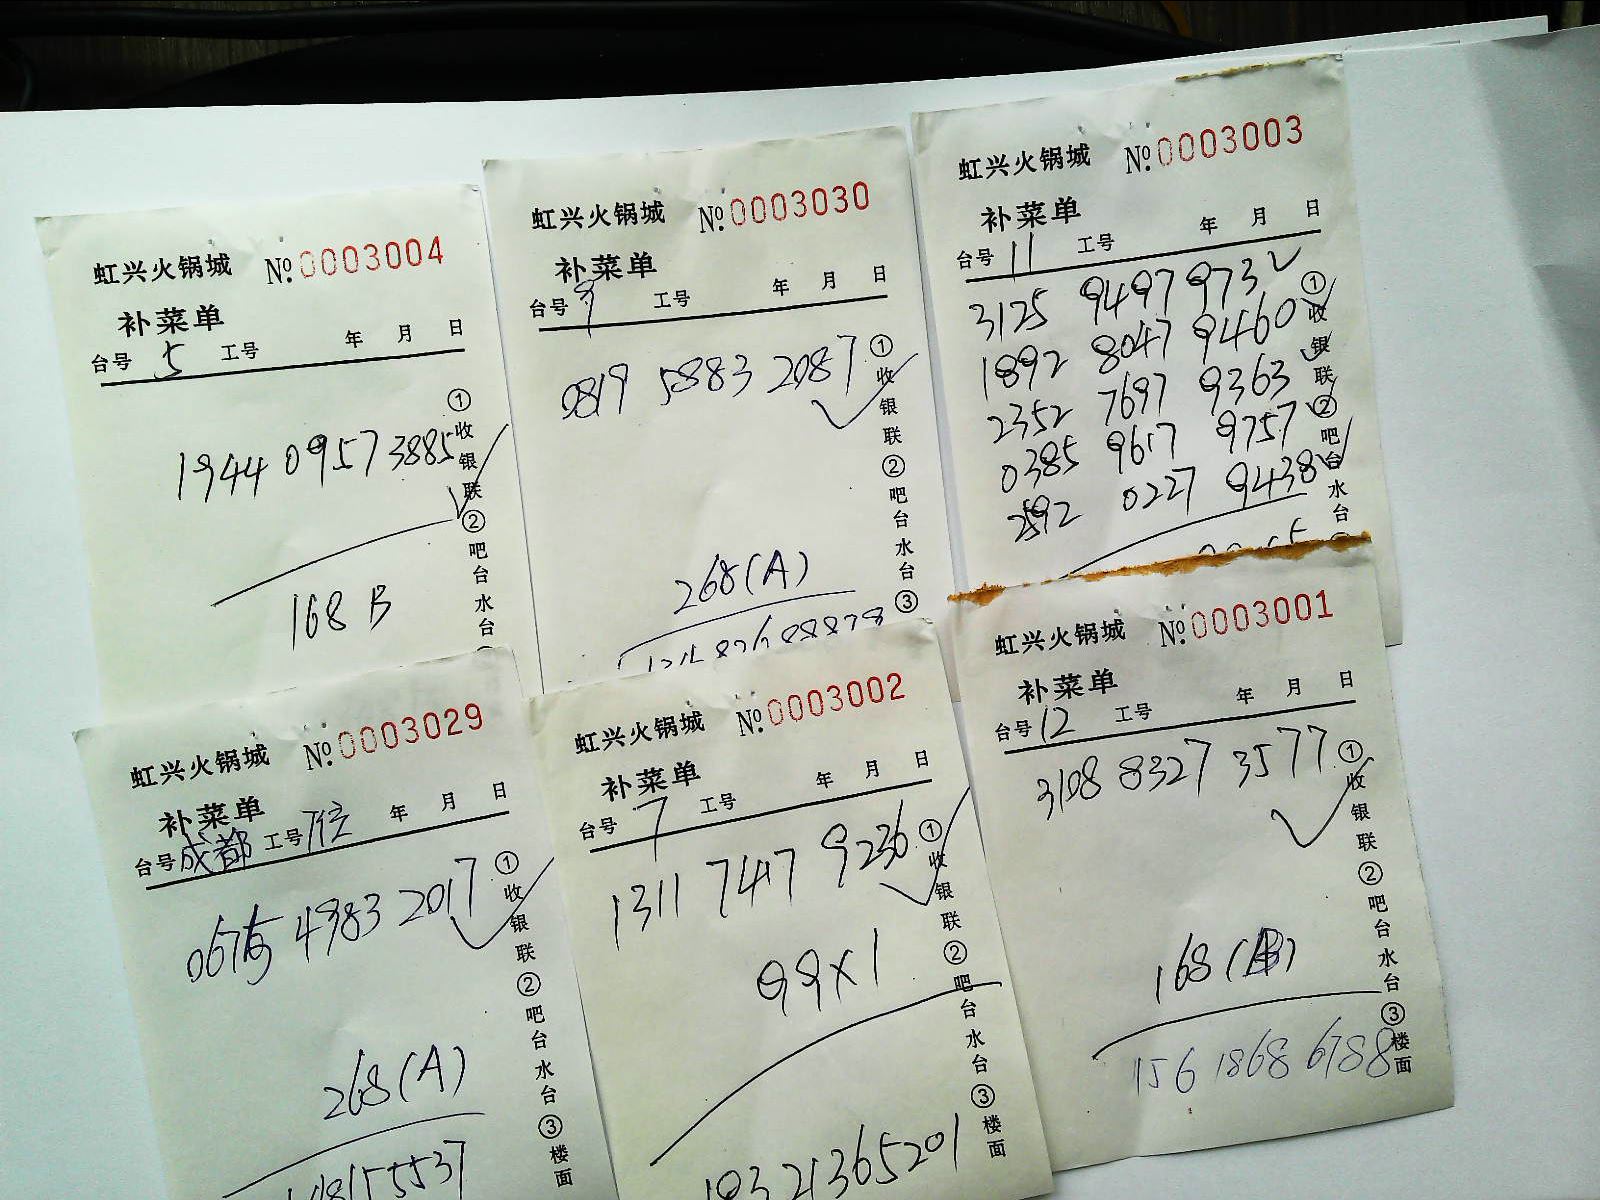 虹兴火锅城 № 0003004
补菜单
台号 5 工号 年 月 日
1944 0957 3885
168 B
①收银联②吧台水台
虹兴火锅城 № 0003030
补菜单
台号 9 工号 年 月 日
0819 5883 2087
268(A)
①收银联②吧台水台③
虹兴火锅城 № 0003003
补菜单
台号 11 工号 年 月 日
3125 9497 9732
1892 8047 9460
2352 7697 9363
0385 9617 9757
2592 0227 9438
①收银联②吧台水台
虹兴火锅城 № 0003029
补菜单
台号 成都 工号 年 月 日
4983 2017
268(A)
①收银联②吧台水台③楼面
虹兴火锅城 № 0003002
补菜单
台号 7 工号 年 月 日
1311 7417 9236
99X1
①收银联②吧台水台③楼面
虹兴火锅城 № 0003001
补菜单
台号 12 工号 年 月 日
3108 8327 3577
168(B)
156 1868 6788
①收银联②吧台水台③楼面